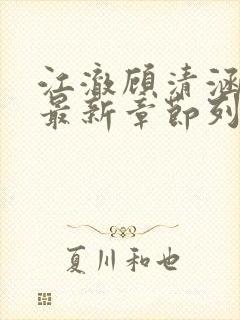 江澈顾清涵
最新章节列
夏川和也